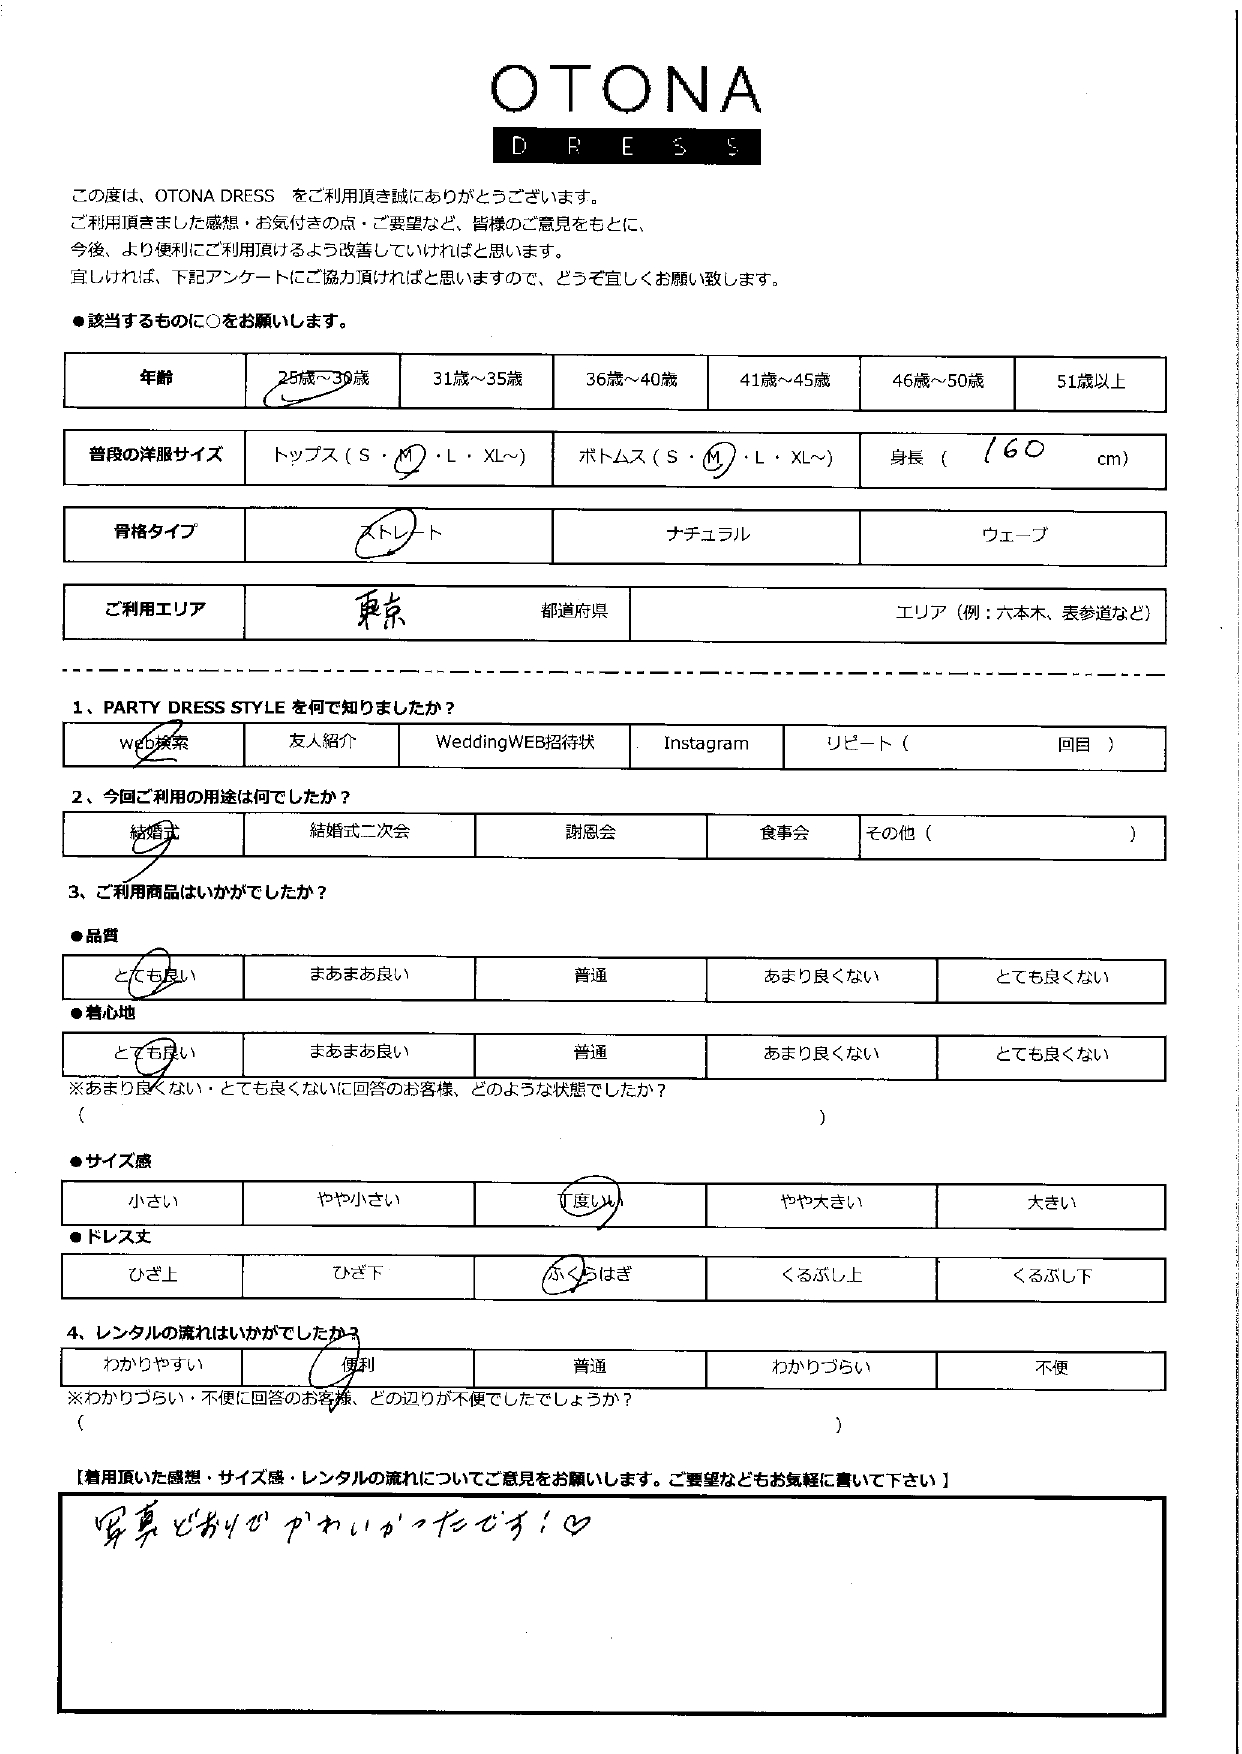 OTONA
DRESS
この度は、OTONA DRESS　をご利用頂き誠にありがとうございます。
ご利用頂きました感想・お気付きの点・ご要望など、皆様のご意見をもとに、
今後、より便利にご利用頂けるよう改善していければと思います。
宜しければ、下記アンケートにご協力頂ければと思いますので、どうぞ宜しくお願い致します。
●該当するものに○をお願いします。
年齢 25歳～30歳 31歳～35歳 36歳～40歳 41歳～45歳 46歳～50歳 51歳以上
普段の洋服サイズ トップス ( S ・ M ・ L ・ XL～) ボトムス ( S ・ M ・ L ・ XL～) 身長 ( 160 cm)
骨格タイプ ストレート ナチュラル ウェーブ
ご利用エリア 東京 都道府県 エリア（例：六本木、表参道など）
1、PARTY DRESS STYLE を何で知りましたか？
web検索 友人紹介 WeddingWEB招待状 Instagram リピート（ 回目 ）
2、今回ご利用の用途は何でしたか？
結婚式 結婚式二次会 謝恩会 食事会 その他（ ）
3、ご利用商品はいかがでしたか？
●品質
とても良い まあまあ良い 普通 あまり良くない とても良くない
●着心地
とても良い まあまあ良い 普通 あまり良くない とても良くない
※あまり良くない・とても良くないに回答のお客様、どのような状態でしたか？
（ ）
●サイズ感
小さい やや小さい 丁度いい やや大きい 大きい
●ドレス丈
ひざ上 ひざ下 ふくらはぎ くるぶし上 くるぶし下
4、レンタルの流れはいかがでしたか？
わかりやすい 便利 普通 わかりづらい 不便
※わかりづらい・不便に回答のお客様、どの辺りが不便でしたでしょうか？
（ ）
【着用頂いた感想・サイズ感・レンタルの流れについてご意見をお願いします。ご要望などもお気軽に書いて下さい 】
写真どおりでかわいかったです！♡